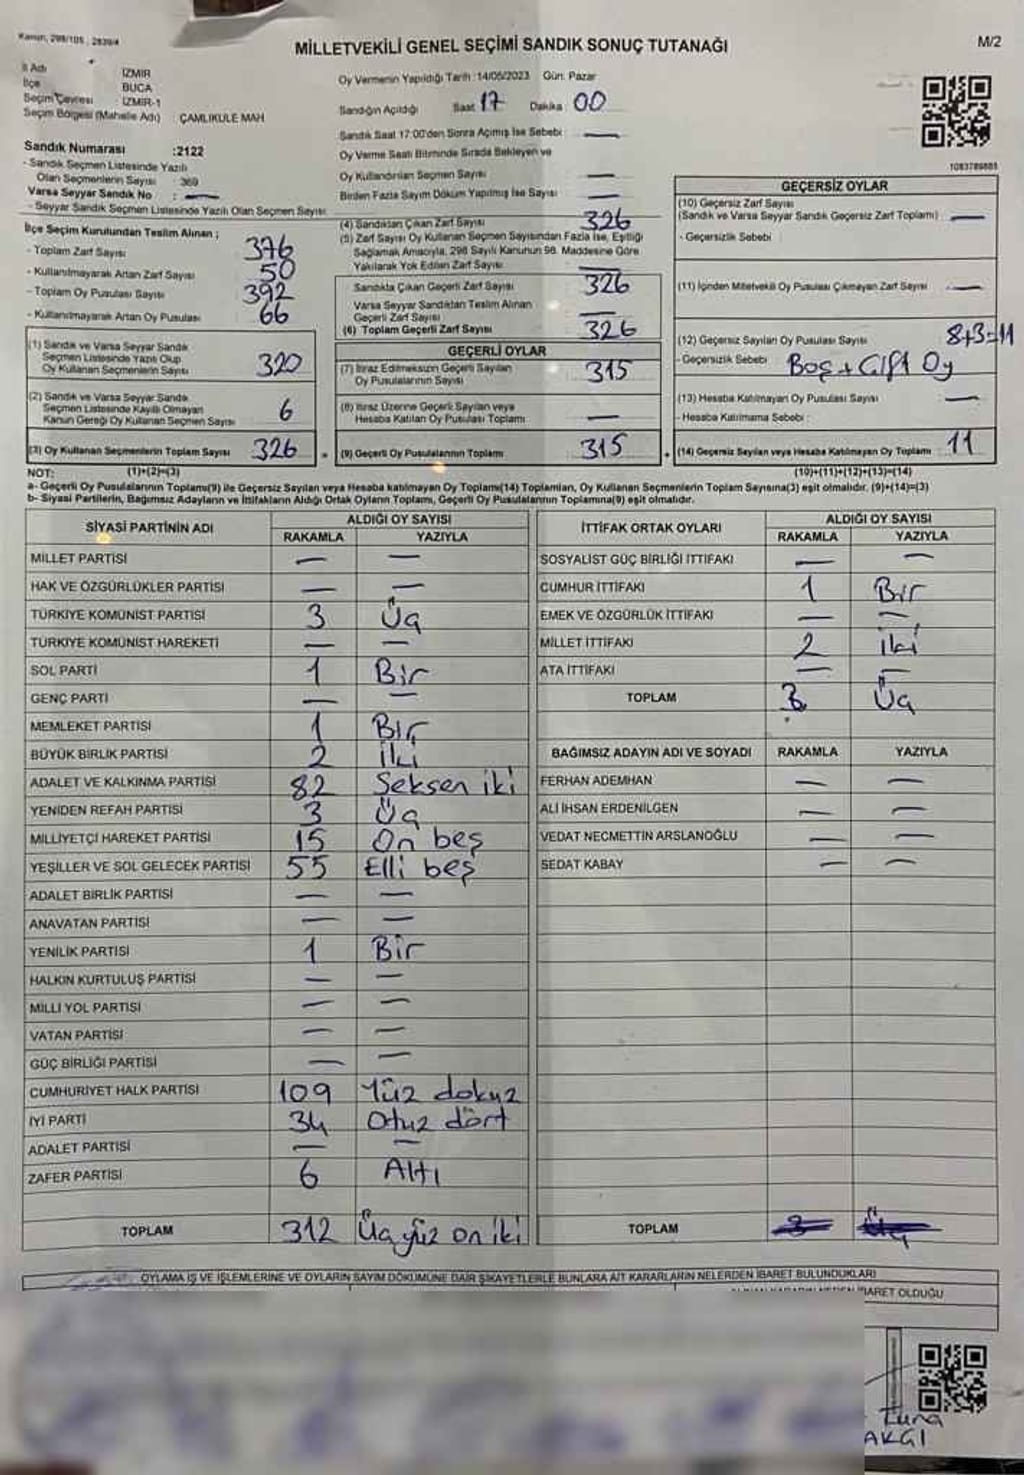 Kanun, 298/105, 2839/4
MİLLETVEKİLİ GENEL SEÇİMİ SANDIK SONUÇ TUTANAĞI
M/2
İl Adı : İZMİR
İlçe : BUCA
Seçim Çevresi : İZMİR-1
Seçim Bölgesi (Mahalle Adı) : ÇAMLIKULE MAH
Oy Vermenin Yapıldığı Tarih :14/05/2023 Gün: Pazar
Sandığın Açıldığı Saat 17 Dakika 00
Sandık Saat 17:00'den Sonra Açımış İse Sebebi : —
Oy Verme Saati Bitiminde Sırada Bekleyen ve
Oy Kullandırılan Seçmen Sayısı —
Birden Fazla Sayım Döküm Yapılmış İse Sayısı —
Sandık Numarası :2122
- Sandık Seçmen Listesinde Yazılı
Olan Seçmenlerin Sayısı : 369
Varsa Seyyar Sandık No : —
- Seyyar Sandık Seçmen Listesinde Yazılı Olan Seçmen Sayısı:
İlçe Seçim Kurulundan Teslim Alınan ;
- Toplam Zarf Sayısı : 376
- Kullanılmayarak Artan Zarf Sayısı : 50
- Toplam Oy Pusulası Sayısı : 392
- Kullanılmayarak Artan Oy Pusulası : 66
(1) Sandık ve Varsa Seyyar Sandık
Seçmen Listesinde Yazılı Olup
Oy Kullanan Seçmenlerin Sayısı 320
(2) Sandık ve Varsa Seyyar Sandık
Seçmen Listesinde Kayıtlı Olmayan
Kanun Gereği Oy Kullanan Seçmen Sayısı 6
(3) Oy Kullanan Seçmenlerin Toplam Sayısı 326
(4) Sandıktan Çıkan Zarf Sayısı 326
(5) Zarf Sayısı Oy Kullanan Seçmen Sayısından Fazla İse, Eşitliği
Sağlamak Amacıyla, 298 Sayılı Kanunun 98. Maddesine Göre
Yakılarak Yok Edilen Zarf Sayısı —
Sandıkta Çıkan Geçerli Zarf Sayısı 326
Varsa Seyyar Sandıktan Teslim Alınan
Geçerli Zarf Sayısı —
(6) Toplam Geçerli Zarf Sayısı 326
GEÇERLİ OYLAR
(7) İtiraz Edilmeksizin Geçerli Sayılan
Oy Pusulalarının Sayısı 315
(8) İtiraz Üzerine Geçerli Sayılan veya
Hesaba Katılan Oy Pusulası Toplamı —
(9) Geçerli Oy Pusulalarının Toplamı 315
1083789885
GEÇERSİZ OYLAR
(10) Geçersiz Zarf Sayısı
(Sandık ve Varsa Seyyar Sandık Geçersiz Zarf Toplamı) —
- Geçersizlik Sebebi :
(11) İçinden Milletvekili Oy Pusulası Çıkmayan Zarf Sayısı —
(12) Geçersiz Sayılan Oy Pusulası Sayısı 8+3=11
- Geçersizlik Sebebi : Boş + Çift Oy
(13) Hesaba Katılmayan Oy Pusulası Sayısı —
- Hesaba Katılmama Sebebi :
(14) Geçersiz Sayılan veya Hesaba Katılmayan Oy Toplamı 11
NOT: (1)+(2)=(3)
(10)+(11)+(12)+(13)=(14)
a- Geçerli Oy Pusulalarının Toplamı(9) ile Geçersiz Sayılan veya Hesaba katılmayan Oy Toplamı(14) Toplamları, Oy Kullanan Seçmenlerin Toplam Sayısına(3) eşit olmalıdır. (9)+(14)=(3)
b- Siyasi Partilerin, Bağımsız Adayların ve İttifakların Aldığı Ortak Oyların Toplamı, Geçerli Oy Pusulalarının Toplamına(9) eşit olmalıdır.
SİYASİ PARTİNİN ADI ALDIĞI OY SAYISI
RAKAMLA YAZIYLA
MİLLET PARTİSİ — —
HAK VE ÖZGÜRLÜKLER PARTİSİ — —
TÜRKİYE KOMÜNİST PARTİSİ 3 Üç
TÜRKİYE KOMÜNİST HAREKETİ — —
SOL PARTİ 1 Bir
GENÇ PARTİ — —
MEMLEKET PARTİSİ 1 Bir
BÜYÜK BİRLİK PARTİSİ 2 İki
ADALET VE KALKINMA PARTİSİ 82 Seksen iki
YENİDEN REFAH PARTİSİ 3 Üç
MİLLİYETÇİ HAREKET PARTİSİ 15 On beş
YEŞİLLER VE SOL GELECEK PARTİSİ 55 Elli beş
ADALET BİRLİK PARTİSİ — —
ANAVATAN PARTİSİ — —
YENİLİK PARTİSİ 1 Bir
HALKIN KURTULUŞ PARTİSİ — —
MİLLİ YOL PARTİSİ — —
VATAN PARTİSİ — —
GÜÇ BİRLİĞİ PARTİSİ — —
CUMHURİYET HALK PARTİSİ 109 Yüz dokuz
İYİ PARTİ 34 Otuz dört
ADALET PARTİSİ — —
ZAFER PARTİSİ 6 Altı
TOPLAM 312 Üç yüz on iki
İTTİFAK ORTAK OYLARI ALDIĞI OY SAYISI
RAKAMLA YAZIYLA
SOSYALİST GÜÇ BİRLİĞİ İTTİFAKI — —
CUMHUR İTTİFAKI 1 Bir
EMEK VE ÖZGÜRLÜK İTTİFAKI — —
MİLLET İTTİFAKI 2 iki
ATA İTTİFAKI — —
TOPLAM 3 Üç
BAĞIMSIZ ADAYIN ADI VE SOYADI RAKAMLA YAZIYLA
FERHAN ADEMHAN — —
ALİ İHSAN ERDENİLGEN — —
VEDAT NECMETTİN ARSLANOĞLU — —
SEDAT KABAY — —
TOPLAM 3 Üç
OYLAMA İŞ VE İŞLEMLERİNE VE OYLARIN SAYIM DÖKÜMÜNE DAİR ŞİKAYETLERLE BUNLARA AİT KARARLARIN NELERDEN İBARET BULUNDUKLARI
İBARET OLDUĞU